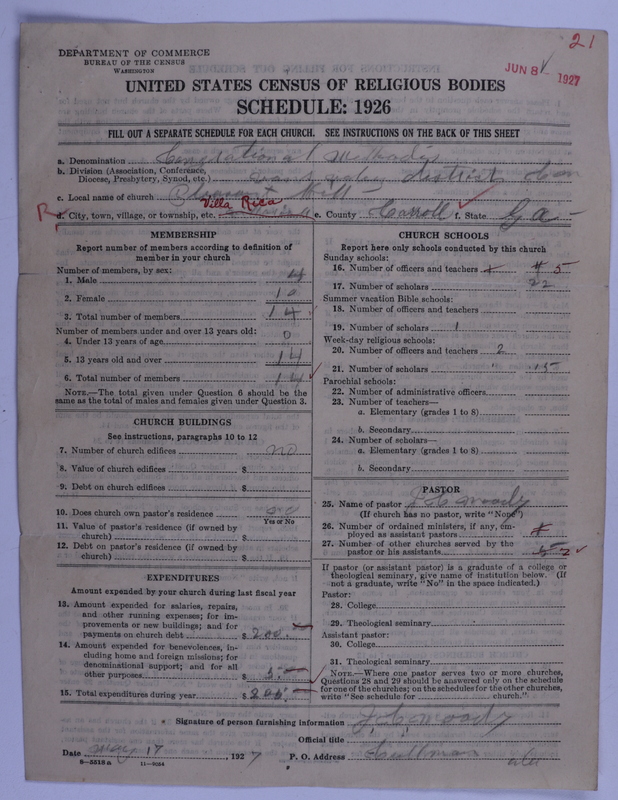 21
JUN 8 1927
DEPARTMENT OF COMMERCE
BUREAU OF THE CENSUS
WASHINGTON
UNITED STATES CENSUS OF RELIGIOUS BODIES
SCHEDULE: 1926
FILL OUT A SEPARATE SCHEDULE FOR EACH CHURCH. SEE INSTRUCTIONS ON THE BACK OF THIS SHEET
a. Denomination
b. Division (Association, Conference,
Diocese, Presbytery, Synod, etc.) district
c. Local name of church Pleasant Hill
R d. City, town, village, or township, etc. Villa Rica e. County Carroll f. State Ga.
MEMBERSHIP
Report number of members according to definition of
member in your church
Number of members, by sex:
1. Male 4
2. Female 10
3. Total number of members 14
Number of members under and over 13 years old:
4. Under 13 years of age 0
5. 13 years old and over 14
6. Total number of members 14
NOTE.—The total given under Question 6 should be the
same as the total of males and females given under Question 3.
CHURCH BUILDINGS
See instructions, paragraphs 10 to 12
7. Number of church edifices no
8. Value of church edifices $
9. Debt on church edifices $
10. Does church own pastor's residence no
Yes or No
11. Value of pastor's residence (if owned by
church) $
12. Debt on pastor's residence (if owned by
church) $
EXPENDITURES
Amount expended by your church during last fiscal year
13. Amount expended for salaries, repairs,
and other running expenses; for im-
provements or new buildings; and for
payments on church debt $ 200.
14. Amount expended for benevolences, in-
cluding home and foreign missions; for
denominational support; and for all
other purposes $ 5.
15. Total expenditures during year $ 205.
CHURCH SCHOOLS
Report here only schools conducted by this church
Sunday schools:
16. Number of officers and teachers 5
17. Number of scholars 22
Summer vacation Bible schools:
18. Number of officers and teachers
19. Number of scholars 1
Week-day religious schools:
20. Number of officers and teachers 2
21. Number of scholars " 15
Parochial schools:
22. Number of administrative officers
23. Number of teachers—
a. Elementary (grades 1 to 8)
b. Secondary
24. Number of scholars—
a. Elementary (grades 1 to 8)
b. Secondary
PASTOR
25. Name of pastor J C Moody
(If church has no pastor, write "None")
26. Number of ordained ministers, if any, em-
ployed as assistant pastors
27. Number of other churches served by the
pastor or his assistants 2
If pastor (or assistant pastor) is a graduate of a college or
theological seminary, give name of institution below. (If
not a graduate, write "No" in the space indicated.)
Pastor:
28. College
29. Theological seminary
Assistant pastor:
30. College
31. Theological seminary
NOTE.—Where one pastor serves two or more churches,
Questions 28 and 29 should be answered only on the schedule
for one of the churches; on the schedules for the other churches,
write "See schedule for church."
Signature of person furnishing information J C Moody
Official title
Date May 17, 1927 P. O. Address Cullman ala
8-5518a 11-9054